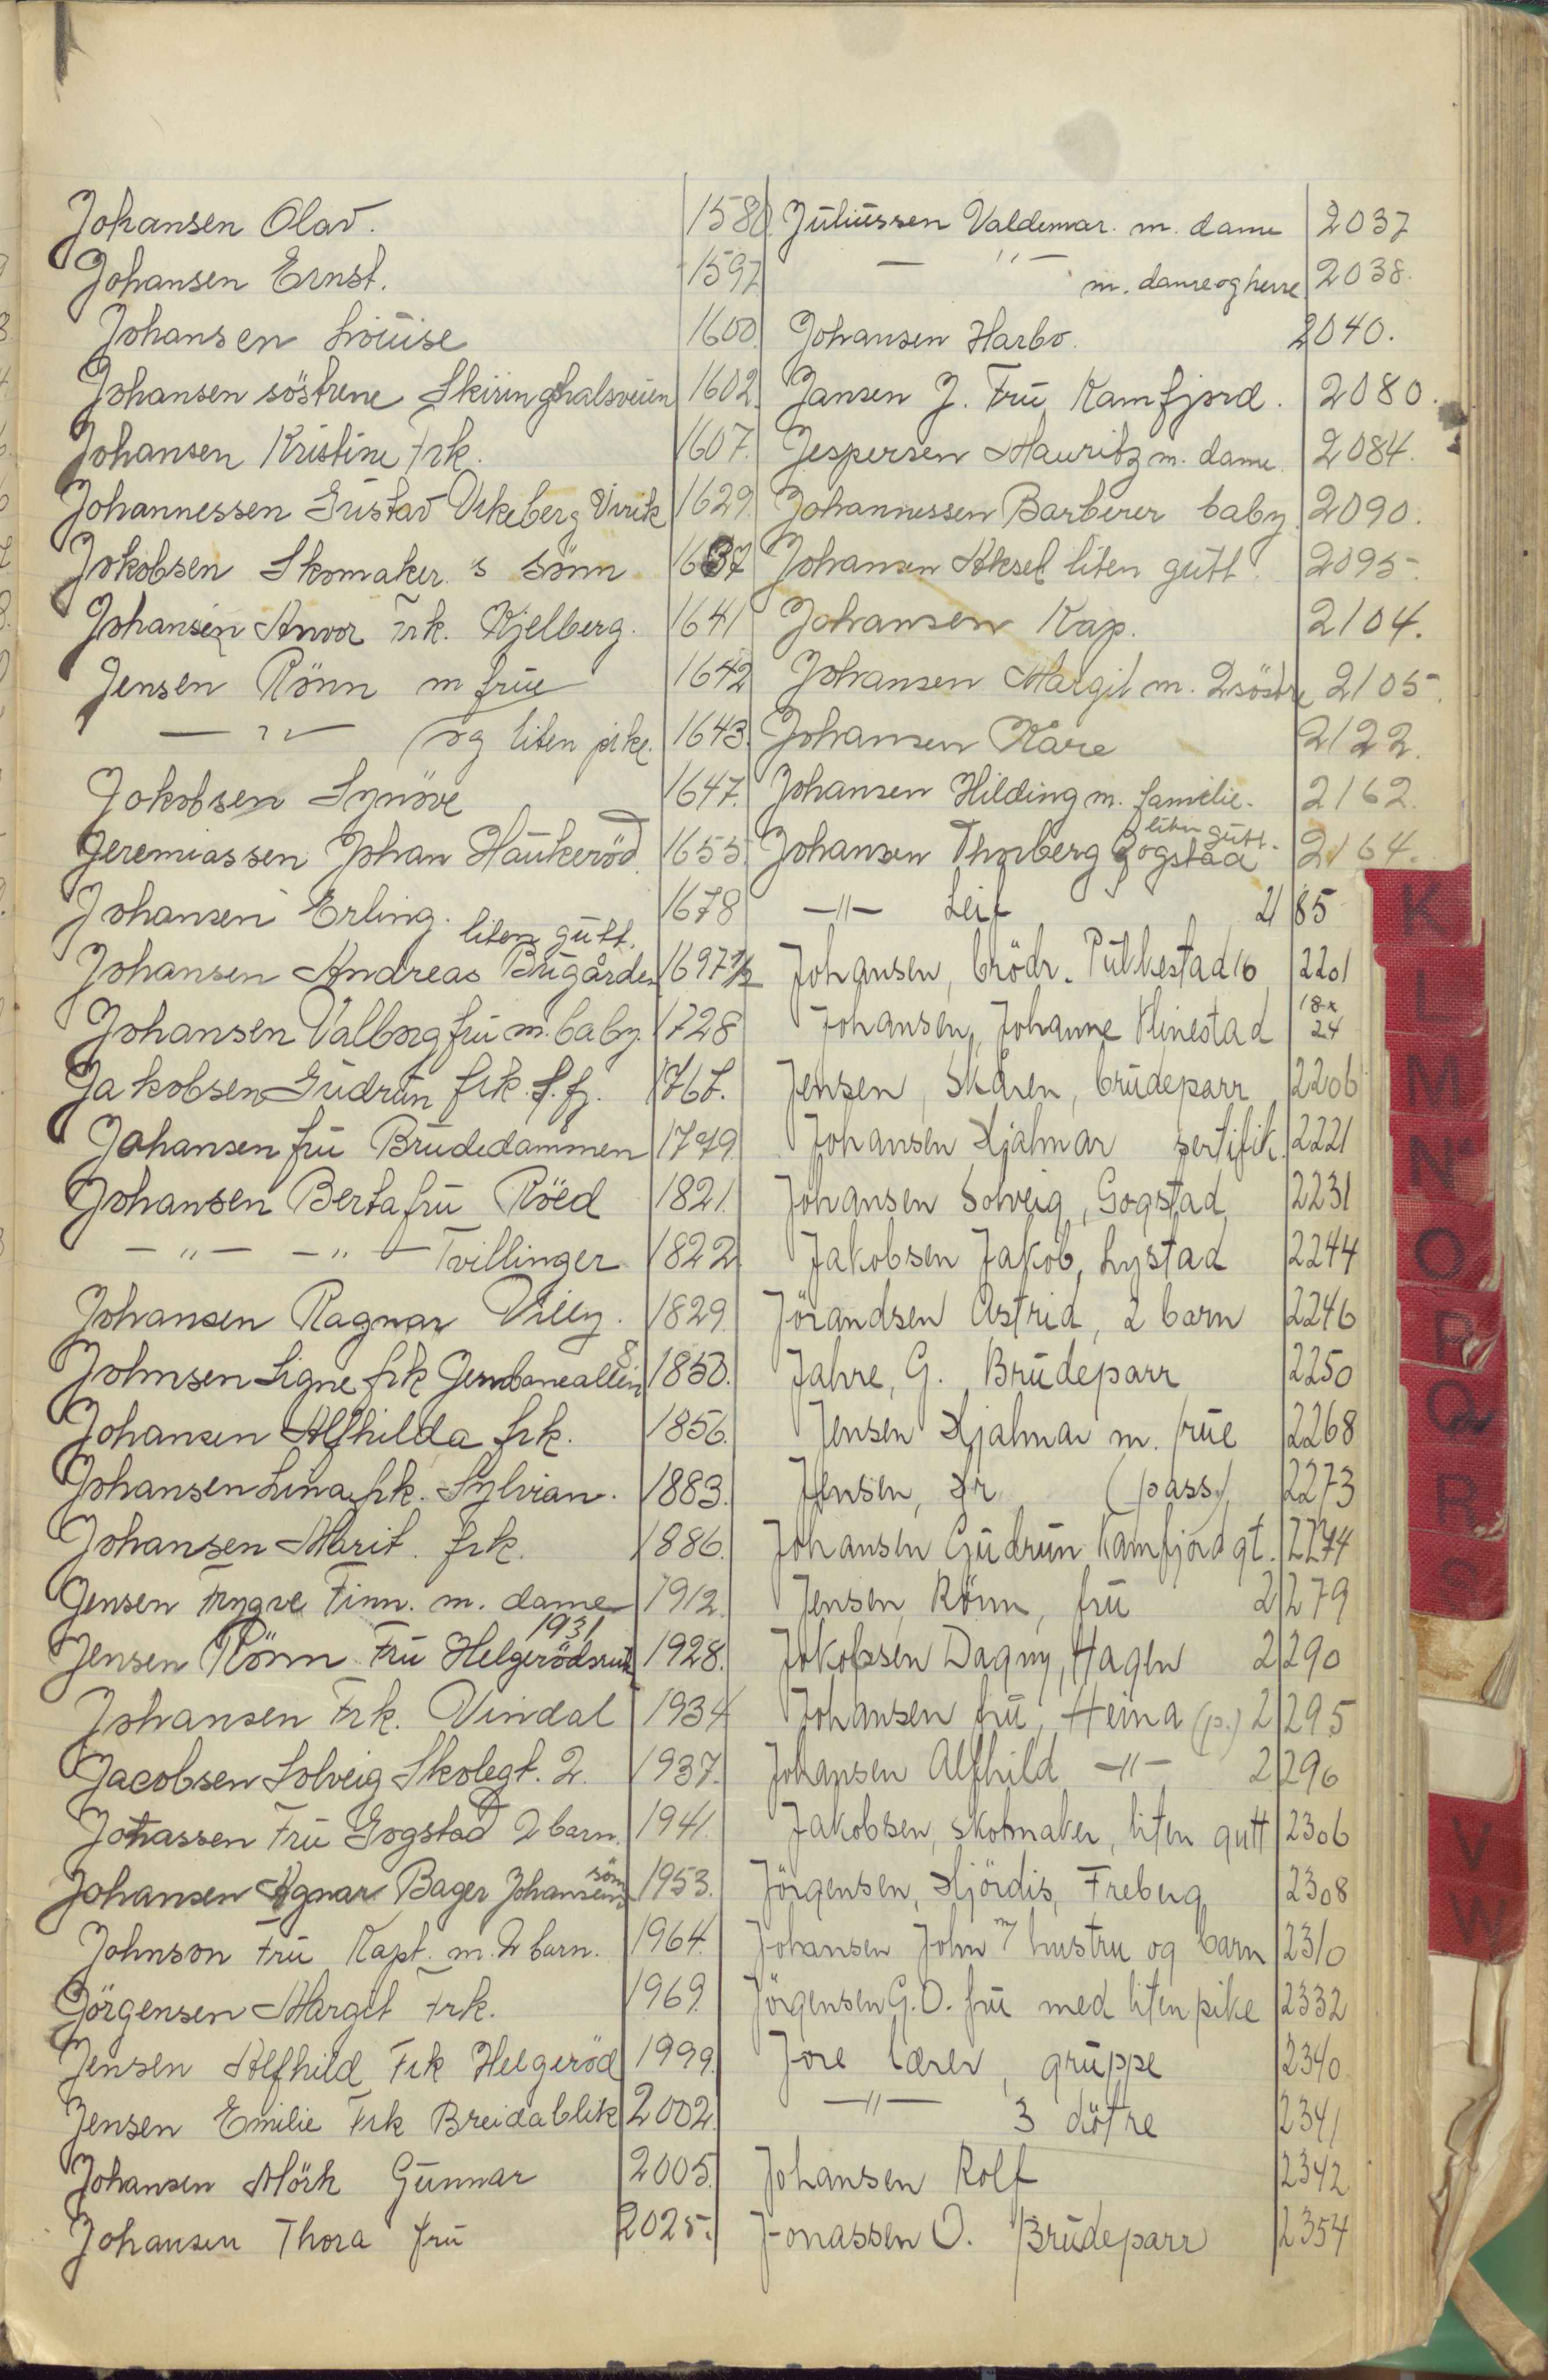 Johansen Olav. 1580.
Johansen Ernst. 1597.
Johansen Louise 1600.
Johansen söstrene Skiringshalsveien 1602.
Johansen Kristine Frk. 1607.
Johannessen Gustav Virik 1629.
Jakobsen Skomaker s sönn 1637
Johansen Anvor Frk. Kjelberg. 1641
Jensen Rönn m frue 1642
— " — og liten pike. 1643.
Jakobsen Synöve 1647.
Jeremiassen Johan Haukeröd. 1655.
Johansen Erling. 1678
liten gutt.
Johansen Andreas Bugården 1697 1/2
Johansen Valborg fru m. baby. 1728
Jakobsen Gudrun frk. 1767.
Johansen fru Brudedammen 1779.
Johansen Berta fru Röed 1821.
— " — — " — Tvillinger 1822.
Johansen Ragnar Villy. 1829.
Johnsen Signe frk Jernbanealleen 8 1850.
Johansen Alfhilda frk. 1856.
Johansen Lina frk. Sylvian. 1883.
Johansen Marit. frk. 1886.
Jensen Trygve Finn. m. dame 1912.
1931
Jensen Rönn Fru Helgerödsrud 1928.
Johansen Frk. Vindal 1934
Jacobsen Solveig Skolegt. 2. 1937.
Fru Gogstad 2 barn. 1941.
Johansen Agnar Bager Johansens sön 1953.
Johnson Fru Kapt. m. 2 barn. 1964.
Jörgensen Margit Frk. 1969.
Jensen Alfhild Frk Helgeröd 1999.
Jensen Emilie Frk Breidablik 2002.
Johansen Mörk Gunnar 2005.
Johansen Thora fru 2025.
Juliussen Valdemar. m. dame 2037
— " — m. dame og herre 2038.
Johansen Harbo. 2040.
Jansen J. Fru Kamfjord. 2080.
Jespersen Mauritz m. dame. 2084.
Johannessen Barberer baby. 2090.
Johansen Aksel liten gutt. 2095.
Johansen Kap. 2104.
Johansen Margit m. 2 söstre 2105.
Johansen Kåre 2122.
Johansen Hilding m. familie. 2162.
liten gutt.
Johansen Thorberg Gogstad 2164.
—"— Leif 2185
Johansen, brödr. Pukkestad 16 2201
Johansen, Johanne Klinestad 18x24
Jensen, Skåren, brudeparr 2206
Johansen Hjalmar sertifik. 2221
Johansen Solveig, Gogstad 2231
Jakobsen Jakob, Lystad 2244
Jörandsen Astrid, 2 barn 2246
Jahre, G. Brudeparr 2250
Jensen Hjalmar m. frue 2268
Jensen, Hr (pass) 2273
Johansen Gudrun Kamfjordgt. 2274
Jensen, Rönn, fru 2279
Jakobsen Dagny, Hagen 2290
Johansen fru, Heina (p.) 2295
Johansen Alfhild —"— 2296
Jakobsen, skomaker, liten gutt 2306
Jörgensen, Hjördis, Freberg 2308
Johansen John m/ hustru og barn 2310
Jörgensen G.O. fru med liten pike 2332
Jore lærer, gruppe 2340
—"— 3 dötre 2341
Johansen Rolf 2342
Jonassen O. Brudeparr 2354
K
L
M
N
O
P
Q
R
S
V
W